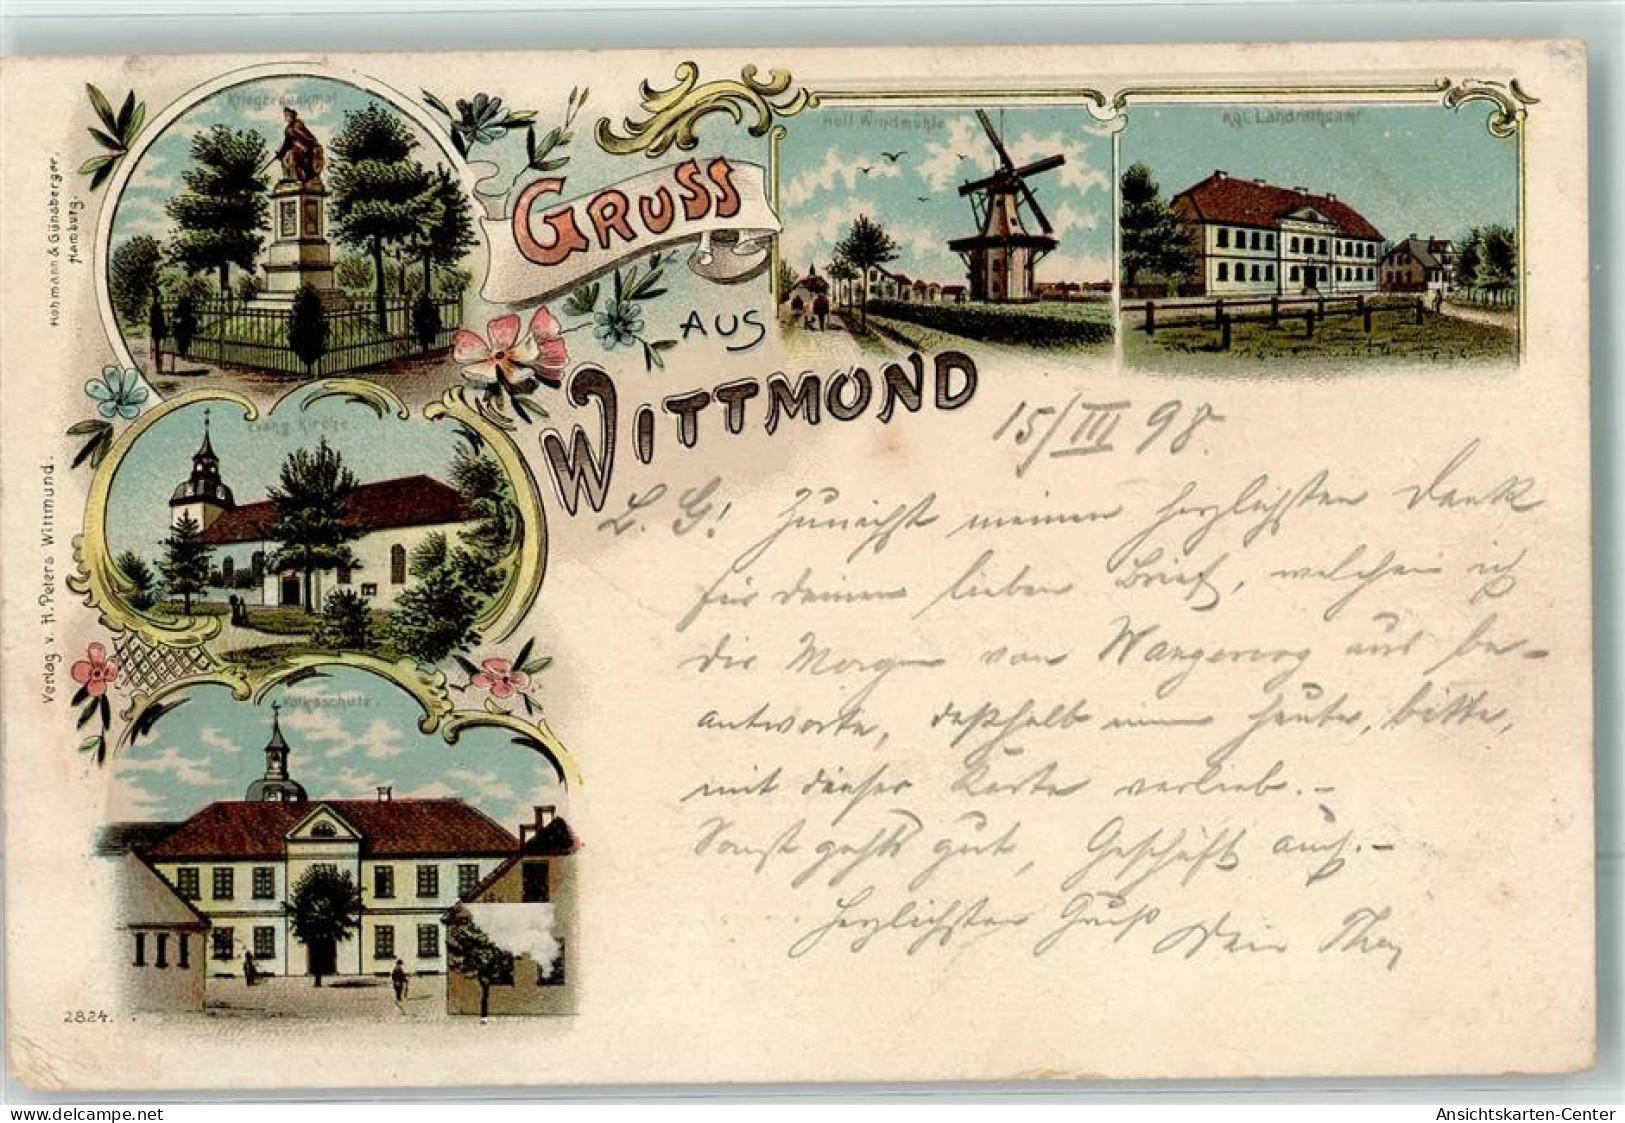 Kriegerdenkmal
GRUSS
AUS
WITTMOND
Holl Windmühle
Kgl. Landrathsamt.
Evang. Kirche.
Volksschule.
Hohmann & Günsberger, Hamburg.
Verlag v. H. Peters Wittmund.
2824.
15/III 98.
L. G! Zunächst meinen herzlichsten Dank
für Deinen lieben Brief, welchen ich
die Morgen von Wangeroog aus be-
antworte, deßhalb nur heute, bitte,
mit dieser Karte verlieb. -
Sonst geht's gut, Geschäft auch. -
Herzlichsten Gruß Dein
Ansichtskarten-Center